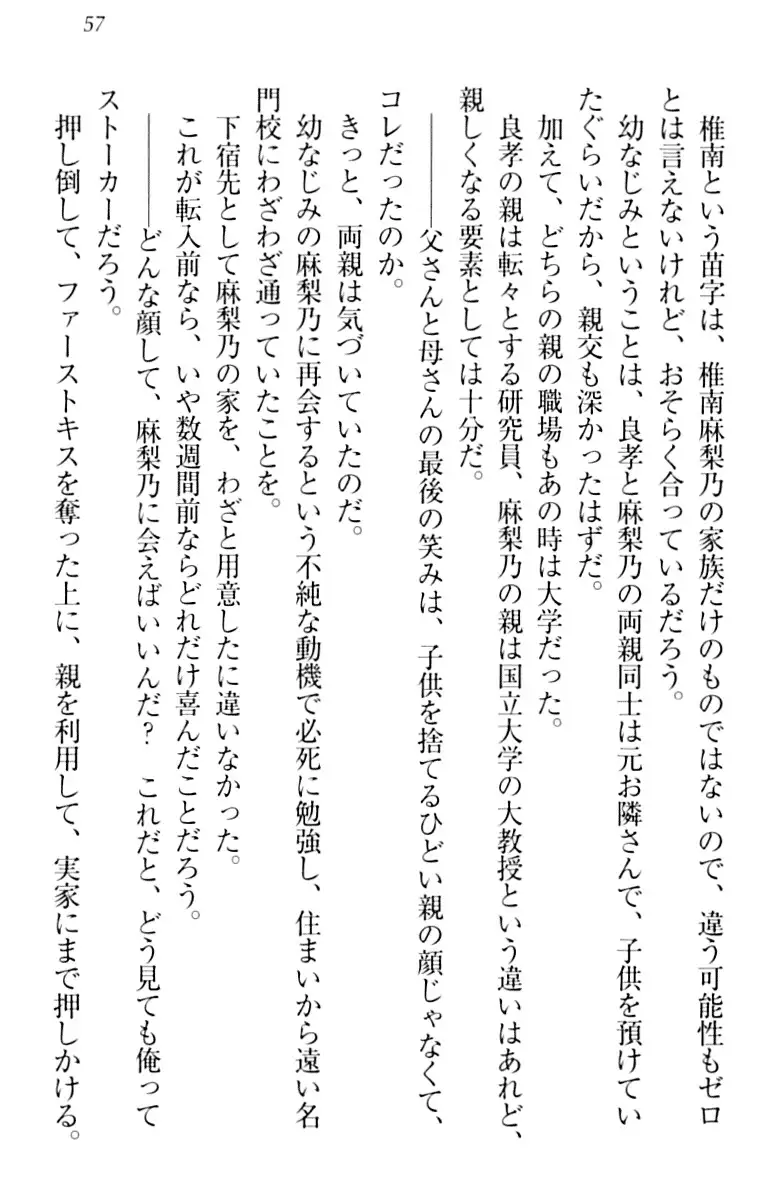 57
椎南という苗字は、椎南麻梨乃の家族だけのものではないので、違う可能性もゼロ
とは言えないけれど、おそらく合っているだろう。
幼なじみということは、良孝と麻梨乃の両親同士は元お隣さんで、子供を預けてい
たぐらいだから、親交も深かったはずだ。
加えて、どちらの親の職場もあの時は大学だった。
良孝の親は転々とする研究員、麻梨乃の親は国立大学の大教授という違いはあれど、
親しくなる要素としては十分だ。
――父さんと母さんの最後の笑みは、子供を捨てるひどい親の顔じゃなくて、
コレだったのか。
きっと、両親は気づいていたのだ。
幼なじみの麻梨乃に再会するという不純な動機で必死に勉強し、住まいから遠い名
門校にわざわざ通っていたことを。
下宿先として麻梨乃の家を、わざと用意したに違いなかった。
これが転入前なら、いや数週間前ならどれだけ喜んだことだろう。
――どんな顔して、麻梨乃に会えばいいんだ？　これだと、どう見ても俺って
ストーカーだろう。
押し倒して、ファーストキスを奪った上に、親を利用して、実家にまで押しかける。